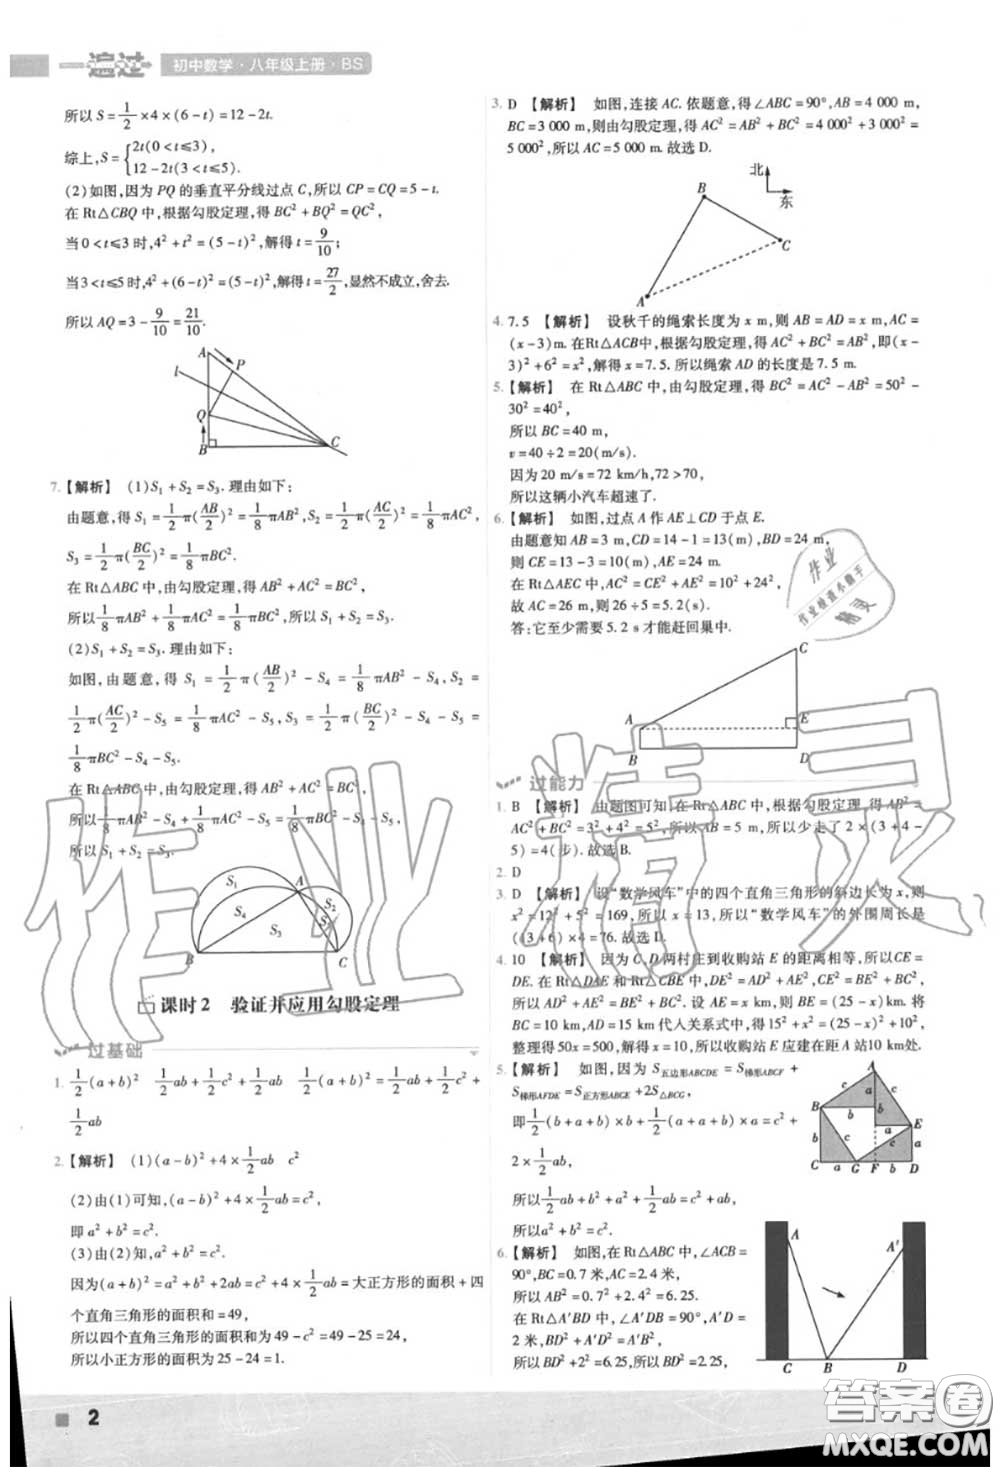 一遍过 初中数学·八年级上册·BS
所以 S=1/2×4×(6-t)=12-2t.
综上,S={2t(0<t≤3),
12-2t(3<t≤5).
(2)如图,因为 PQ 的垂直平分线过点 C,所以 CP=CQ=5-t.
在 Rt△CBQ 中,根据勾股定理,得 BC²+BQ²=QC²,
当 0<t≤3 时,4²+t²=(5-t)²,解得 t=9/10;
当 3<t≤5 时,4²+(6-t)²=(5-t)²,解得 t=27/2,显然不成立,舍去.
所以 AQ=3-9/10=21/10.
A
P
l
Q
B
C
7.【解析】 (1)S₁+S₂=S₃.理由如下:
由题意,得 S₁=1/2π(AB/2)²=1/8πAB²,S₂=1/2π(AC/2)²=1/8πAC²,
S₃=1/2π(BC/2)²=1/8πBC².
在 Rt△ABC 中,根据勾股定理,得 AB²+AC²=BC²,
所以1/8πAB²+1/8πAC²=1/8πBC²,所以 S₁+S₂=S₃.
(2)S₁+S₂=S₃.理由如下:
如图,由题意,得 S₁=1/2π(AB/2)²-S₄=1/8πAB²-S₄,S₂=
1/2π(AC/2)²-S₅=1/8πAC²-S₅,S₃=1/2π(BC/2)²-S₄-S₅=
1/8πBC²-S₄-S₅.
在 Rt△ABC 中,根据勾股定理,得 AB²+AC²=BC²,
所以1/8πAB²-S₄+1/8πAC²-S₅=1/8πBC²-S₄-S₅,
所以 S₁+S₂=S₃.
S₁
A
S₂
S₄
S₃
S₅
B
C
课时2 验证并应用勾股定理
过基础
1. 1/2(a+b)² 1/2ab+1/2c²+1/2ab 1/2(a+b)²=1/2ab+1/2c²+
1/2ab
2.【解析】 (1)(a-b)²+4×1/2ab c²
(2)由(1)可知,(a-b)²+4×1/2ab=c²,
即 a²+b²=c².
(3)由(2)可知,a²+b²=c²,
因为(a+b)²=a²+b²+2ab=c²+4×1/2ab=大正方形的面积+四
个直角三角形的面积和=49,
所以四个直角三角形的面积和为 49-25=24,
所以小正方形的面积为 25-24=1.
3. D 【解析】 如图,连接 AC.依题意,得∠ABC=90°,AB=4 000 m,
BC=3 000 m,则由勾股定理,得 AC²=AB²+BC²=4 000²+3 000²=
5 000²,所以 AC=5 000 m.故选 D.
北
东
B
C
A
4. 7.5 【解析】 设秋千的绳索长度为 x m,则 AB=AD=x m,AC=
(x-3)m.在 Rt△ACB 中,根据勾股定理,得 AC²+BC²=AB²,即(x-
3)²+6²=x²,解得 x=7.5.所以绳索 AD 的长度是 7.5 m.
5.【解析】 在 Rt△ABC 中,由勾股定理,得 BC²=AC²-AB²=50²-
30²=40²,
所以 BC=40 m,
v=40÷2=20(m/s).
因为 20 m/s=72 km/h,72>70,
所以这辆小汽车超速了.
6.【解析】 如图,过点 A 作 AE⊥CD 于点 E.
由题意知 AB=3 m,CD=14-1=13(m),BD=24 m,
则 CE=13-3=10(m),AE=24 m.
在 Rt△AEC 中,AC²=CE²+AE²=10²+24²=26²,
故 AC=26 m,所以 26÷5=5.2(s).
答:它至少需要 5.2 s 才能赶回巢中.
C
A
E
B
D
过能力
1. B 【解析】 由题图可知,在 Rt△ABC 中,根据勾股定理,得 AB²=
AC²+BC²=3²+4²=5²,所以 AB=5 m,所以少走了 2×(3+4-
5)=4(步).故选 B.
2. D
3. D 【解析】 设“数学风车”中的四个直角三角形的斜边长为 x,则
x²=12²+5²=169,所以 x=13,所以“数学风车”的外围周长是
(13+6)×4=76.故选 D.
4. 10 【解析】 因为 C,D 两村庄到收购站 E 的距离相等,所以 CE=
DE.在 Rt△DAE 和 Rt△CBE 中,由勾股定理,得 DE²=AD²+AE²,CE²=BE²+BC²,
所以 AD²+AE²=BE²+BC².设 AE=x km,则 BE=(25-x)km.将
BC=10 km,DA=15 km 代入关系式中,得 15²+x²=(25-x)²+10²,
整理得 50x=500,所以 x=10,所以收购站 E 应建在距 A 站10 km处.
5.【解析】 如图,因为 S五边形ABCDE=S梯形ABCF+
S梯形AFDE=S正方形ABGE+2S△BCG,
即1/2(b+a+b)×b+1/2(a+a+b)×a=c²+
2×1/2ab,
所以1/2ab+b²+a²+1/2ab=c²+ab,
所以a²+b²=c².
A
c
a
c
B
b
b
a
E
b
c
c
a
C
a
G
F
b
D
6.【解析】 如图,在Rt△ACB中,∠ACB=
90°,BC=0.7 米,AC=2.4 米,
所以 AB²=0.7²+2.4²=6.25.
在 Rt△A'BD 中,∠A'DB=90°,A'D=
2 米,BD²+A'D²=A'B²,
所以 BD²+2²=6.25,所以 BD²=2.25,
A
A'
C
B
D
2
作业
作业检查小能手
精灵
作业精灵
答案圈
MXQE.COM